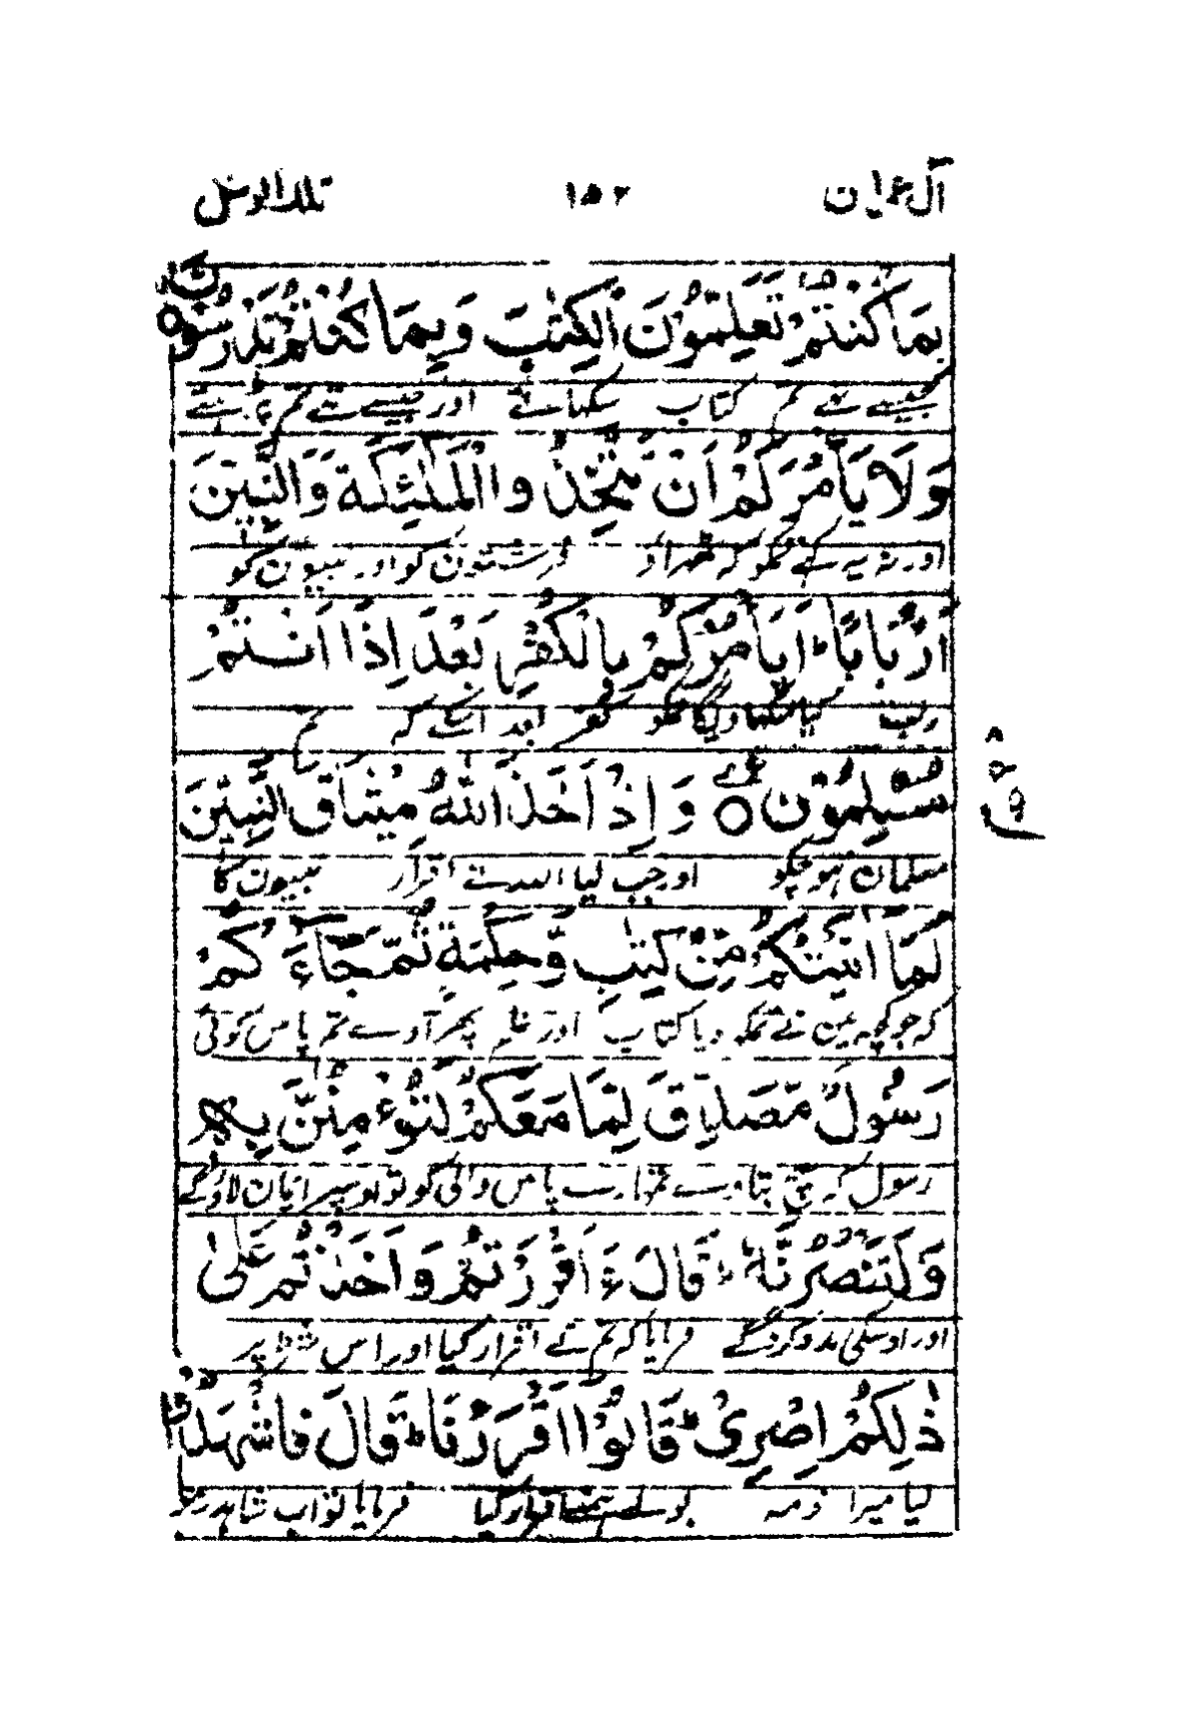 آل عمران ١٥٢ تلك الرسل
بِمَا كُنْتُمْ تُعَلِّمُوْنَ الْكِتٰبَ وَبِمَا كُنْتُمْ تَدْرُسُوْنَ
جیسے تھے تم کتاب سکھاتے اور جیسے تھے تم پڑہتے
وَلَا يَأْمُرَكُمْ اَنْ تَتَّخِذُوا الْمَلٰٓئِكَةَ وَالنَّبِيّٖنَ
اور نہ یہ کہے تمکو کہ ٹھراؤ فرشتون کو اور نبیون کو
اَرْبَابًا ؕ اَيَأْمُرُكُمْ بِالْكُفْرِ بَعْدَ اِذْ اَنْتُمْ
رب کیا سکھاویگا تمکو کفر بعد اسکے کہ تم
مُّسْلِمُوْنَ ۝ وَاِذْ اَخَذَ اللّٰهُ مِيْثَاقَ النَّبِيّٖنَ
مسلمان ہو چکو اور جب لیا اللہ نے اقرار نبیون کا
لَمَآ اٰتَيْتُكُمْ مِّنْ كِتٰبٍ وَّحِكْمَةٍ ثُمَّ جَآءَكُمْ
کہ جو کچہ مین نے تمکو دیا کتاب اور علم پھر آوے تم پاس کوئی
رَسُوْلٌ مُّصَدِّقٌ لِّمَا مَعَكُمْ لَتُؤْمِنُنَّ بِهٖ
رسول کہ سچ بتاوے تمہارے پاس والی کو تو اوسپر ایمان لاؤگے
وَلَتَنْصُرُنَّهٗ ؕ قَالَ ءَاَقْرَرْتُمْ وَاَخَذْتُمْ عَلٰى
اور اوسکی مدد کروگے فرمایا کہ تم نے اقرار کیا اور اس شرط پر
ذٰلِكُمْ اِصْرِيْ ؕ قَالُوْٓا اَقْرَرْنَا ؕ قَالَ فَاشْهَدُوْا
لیا میرا ذمہ بولے ہمنے اقرار کیا فرمایا تو اب شاہد رہو